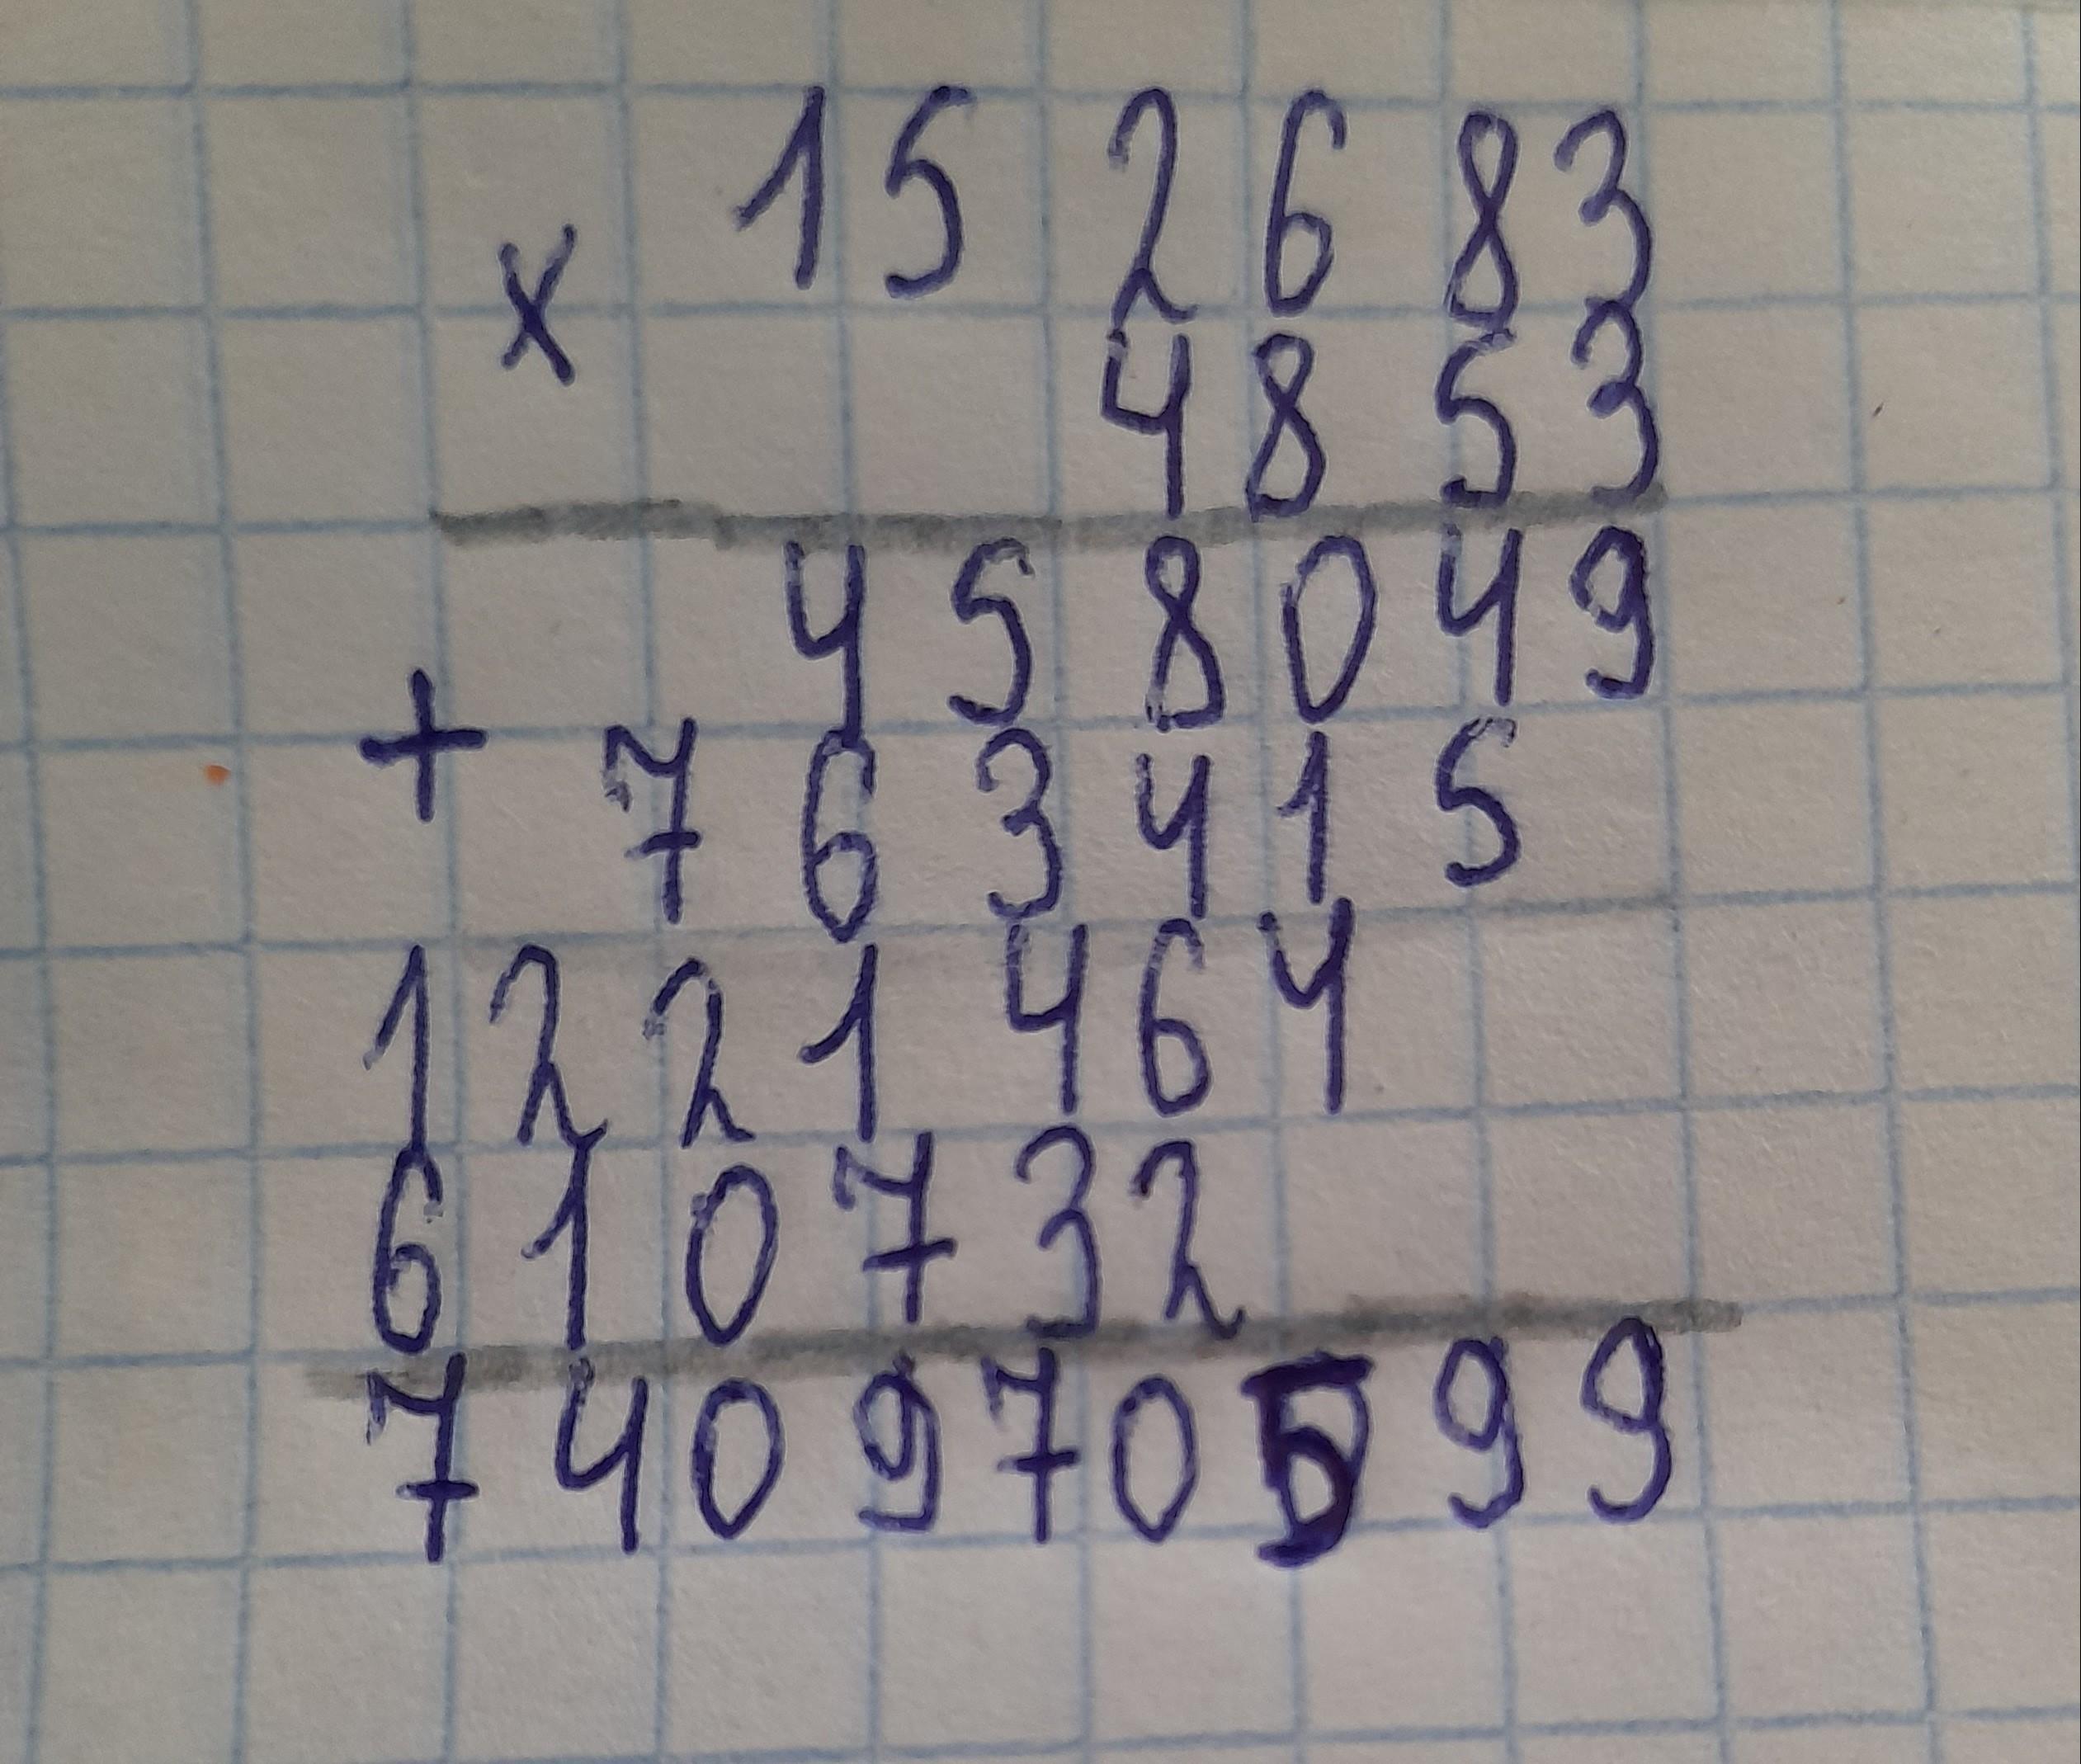 x 15 26 83
4853
458049
+ 763415
1221464
610732
740970599